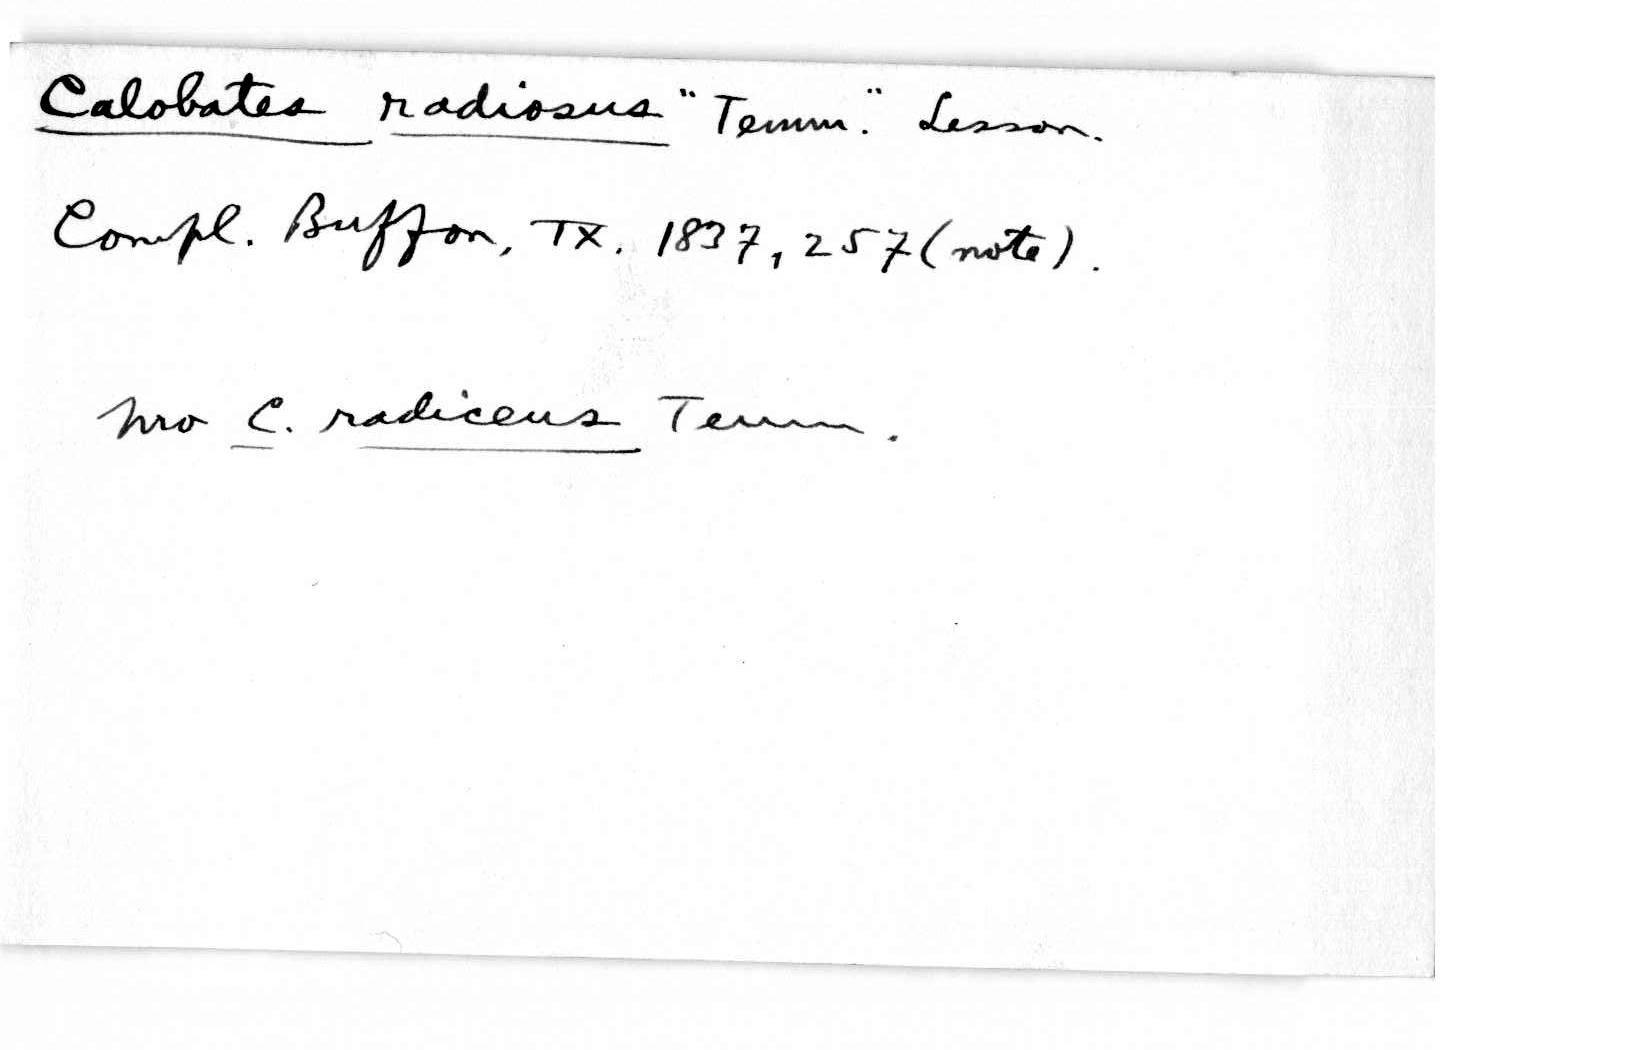 Calobates radiosus "Temm." Lesson.
Compl. Buffon, IX. 1837, 257 (note).
pro C. radiceus Temm.